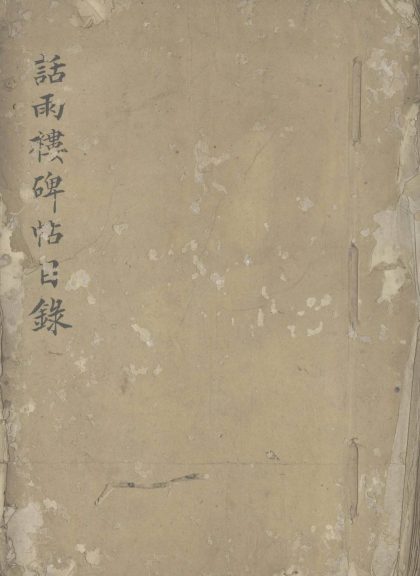 話雨樓碑帖目錄